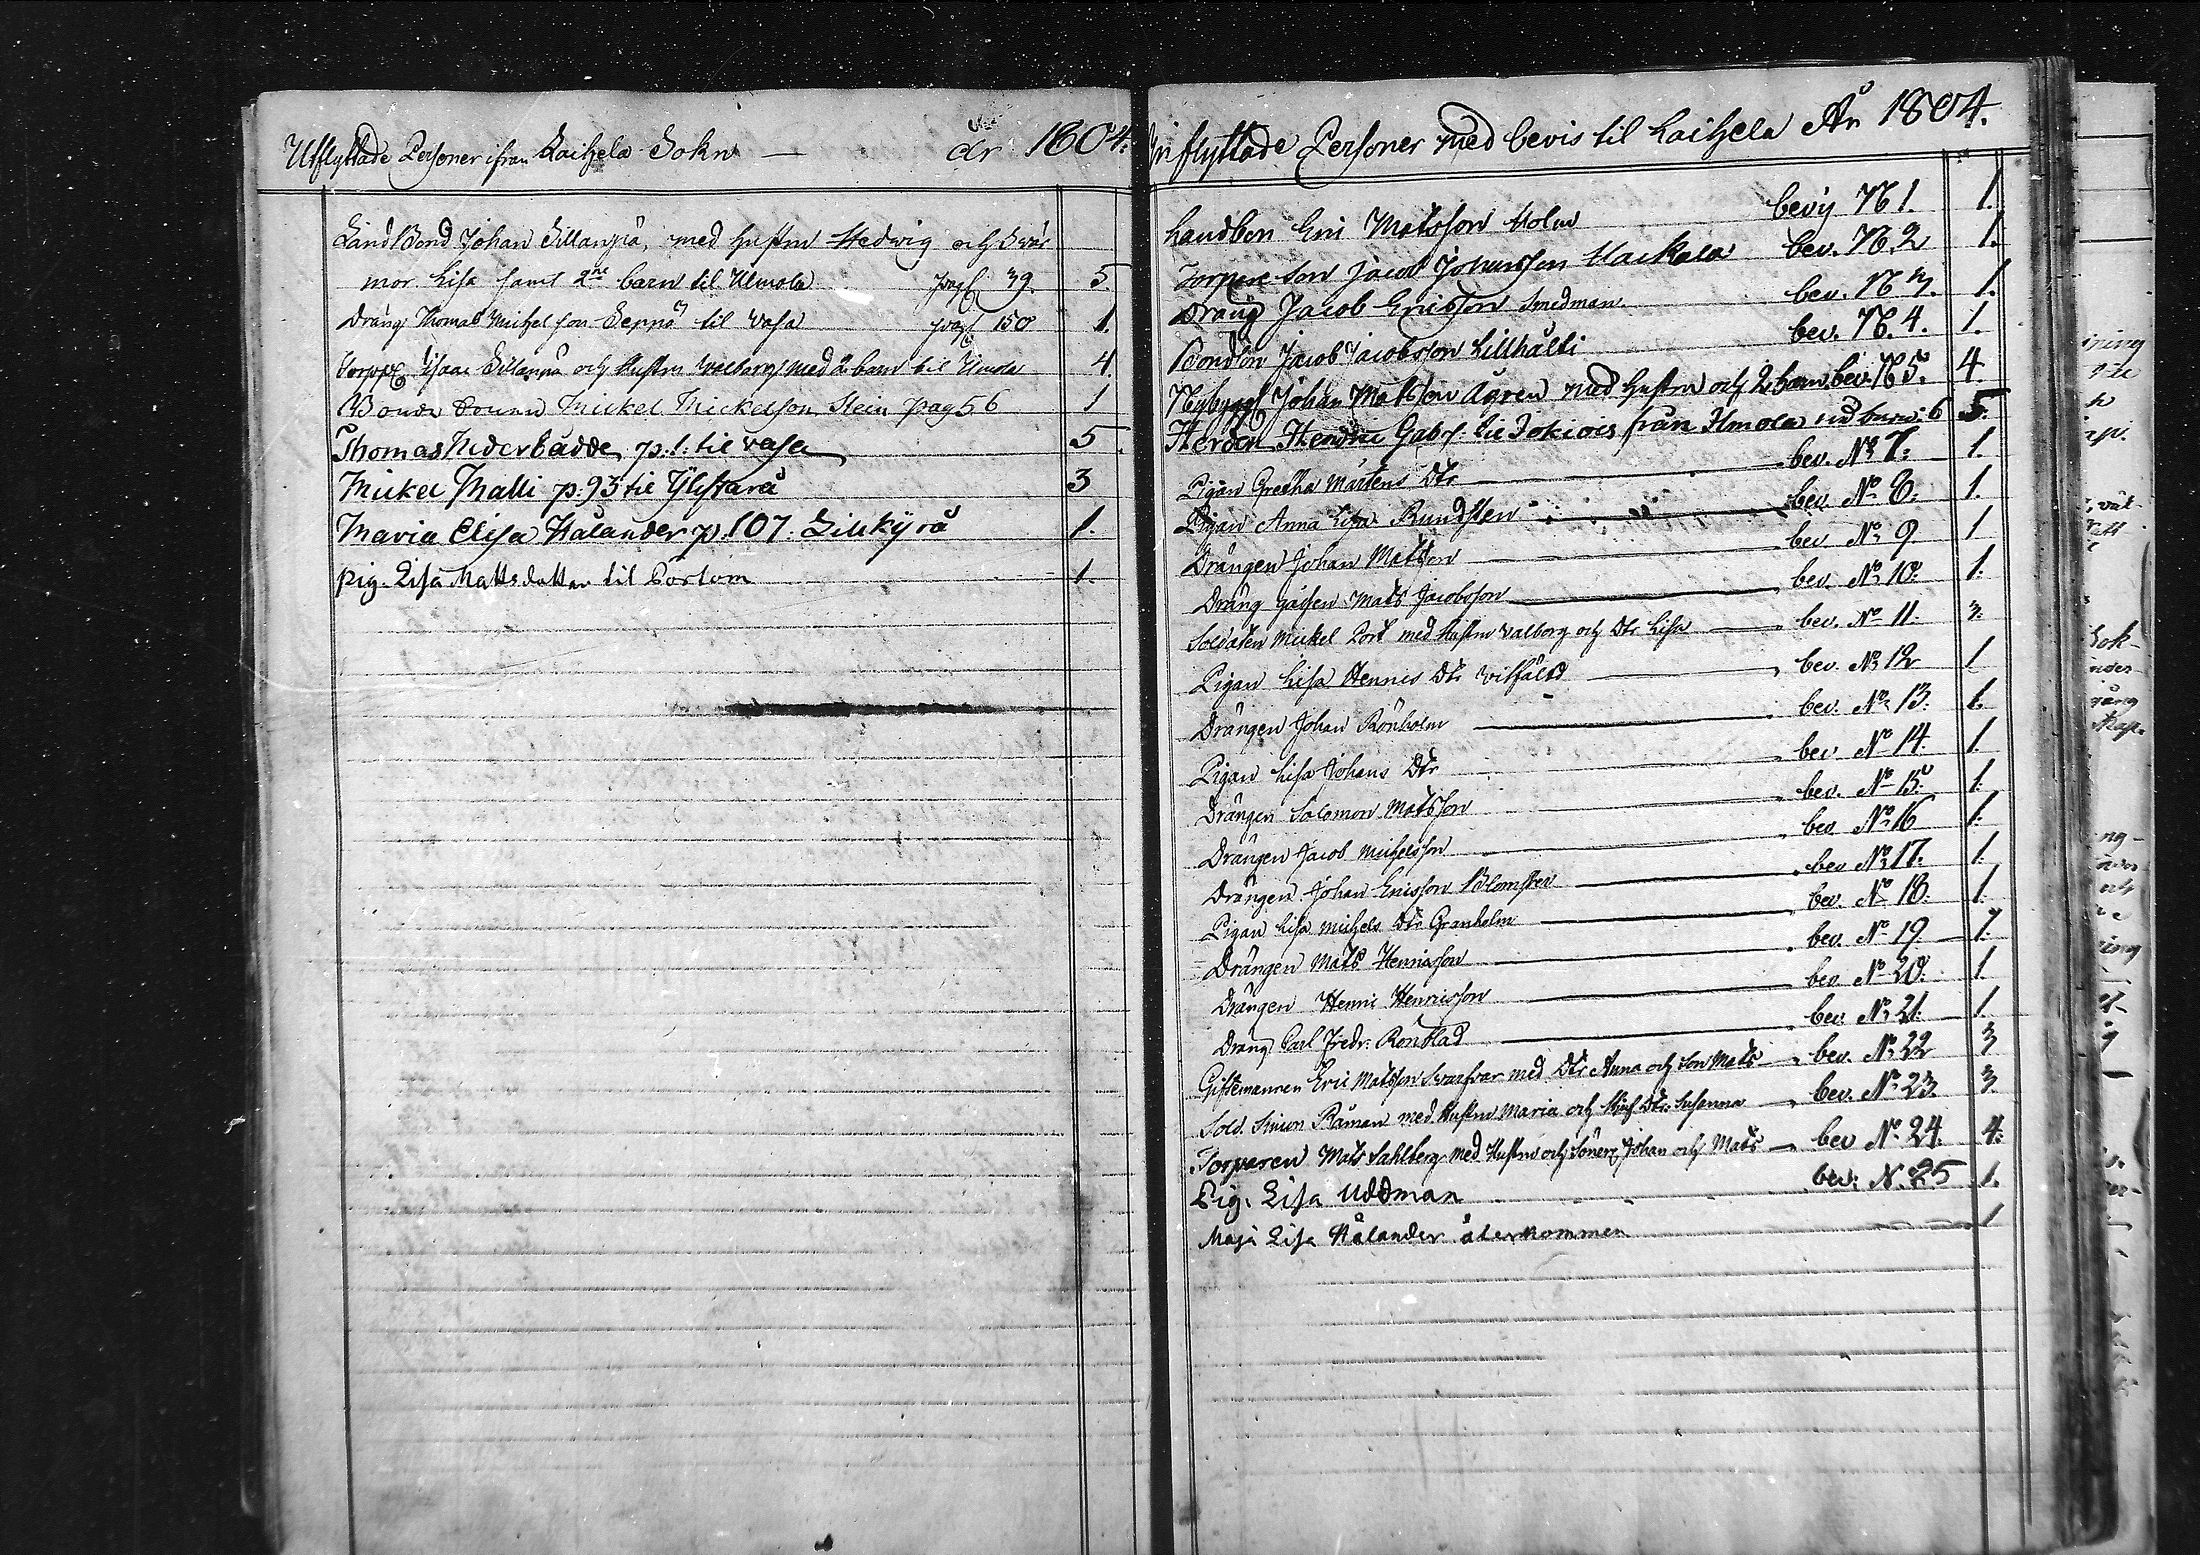 Utflyttade Personer ifrån Laihela Sokn — år 1804.
LandBond Johan Sillanpää, med hustru Hedwig och Svär
mor Lisa samt 2ne barn til Ilmola pag 39. 5.
Dräng Thomas Michelson Seppä til Vasa pag 150 1.
Torpar Isaac Sillanpä och Hustru Walborg med 2 barn til Ilmola 4.
Bonde Mickel Mickelson Stein pag 56 1
Thomas Nederbådde p. 1: til Vasa 5
Mickel Malli p. 93 til Ylistaro 3
Maria Elisa Hålander p. 107. Lillkÿrå 1.
Pig. Lisa Mattsdotter til Portom 1.
Inflyttade Personer med bevis til Laihela År 1804.
Landbon Eric Matsson Holm bevis No 1. 1.
Torpare Son Jacob Johansson Hackala bev. No 2 1.
Dräng Jacob Ericsson Smedman bev. No 3. 1.
Bondson Jacob Jacobsson Lillhålti bev. No 4. 1.
Nybygg Johan Matsson Ågren med hustru och 2 barn bev. No 5. 4.
Herden Henric Gabr. til Jokiois från Ilmola 6 5.
Pigan Gretha Mårtens Dtr bev. No 7. 1.
Pigan Anna Lisa Rundsten bev. No 8. 1.
Drängen Johan Matsson bev. No 9 1
Dräng gåssen Mats Jacobsson bev. No 10. 1.
Soldaten Mickel Tort med Hustru Valborg och Dtr Lisa bev. No 11. 3.
Pigan Lisa Hennics Dtr Vilfält bev. No 12 1
Drängen Johan Rönholm bev. No 13. 1.
Pigan Lisa Johans Dtr bev No 14. 1.
Drängen Salomon Matsson bev. No 15. 1.
Drängen Jacob Michelsson bev. No 16 1.
Drängen Johan Ericsson Blomster bev No 17. 1.
Pigan Lisa Michels Dtr Granholm bev. No 18. 1.
Drängen Mats Henricsson bev. No 19. 1.
Drängen Henric Henricsson bev No 20. 1
Dräng Carl Fredr. Rönblad bev. No 21. 1.
Giftemannen Eric Matsson Svarfvar med Dtr Anna och Son Mats bev. No 22 3
Sold. Simon Råman med Hustru Maria och Dtr. Susanna bev. No 23. 3.
Torparen Mats Sahlberg med Hustru och Söner Johan och Mats bev No 24. 4.
Pig. Lisa Uddman bev: N. 25 1.
Maja Lisa Hålander återkommen 1